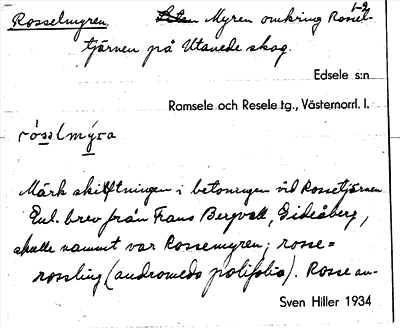 1-2
Rosselmyren. Myren omkring Rossel-
tjärnen på Utanede skog.
Edsele s:n
Ramsele och Resele t.g., Västernorrl. l.
rósslmýra
Märk skiftningen i betoningen vid Rossetjärnen
Enl. brev från Frans Bergvall, Gideåberg,
skulle namnet var Rossemyren; rosse=
rossling (andromeda polifolia). Rosse an-
Sven Hiller 1934